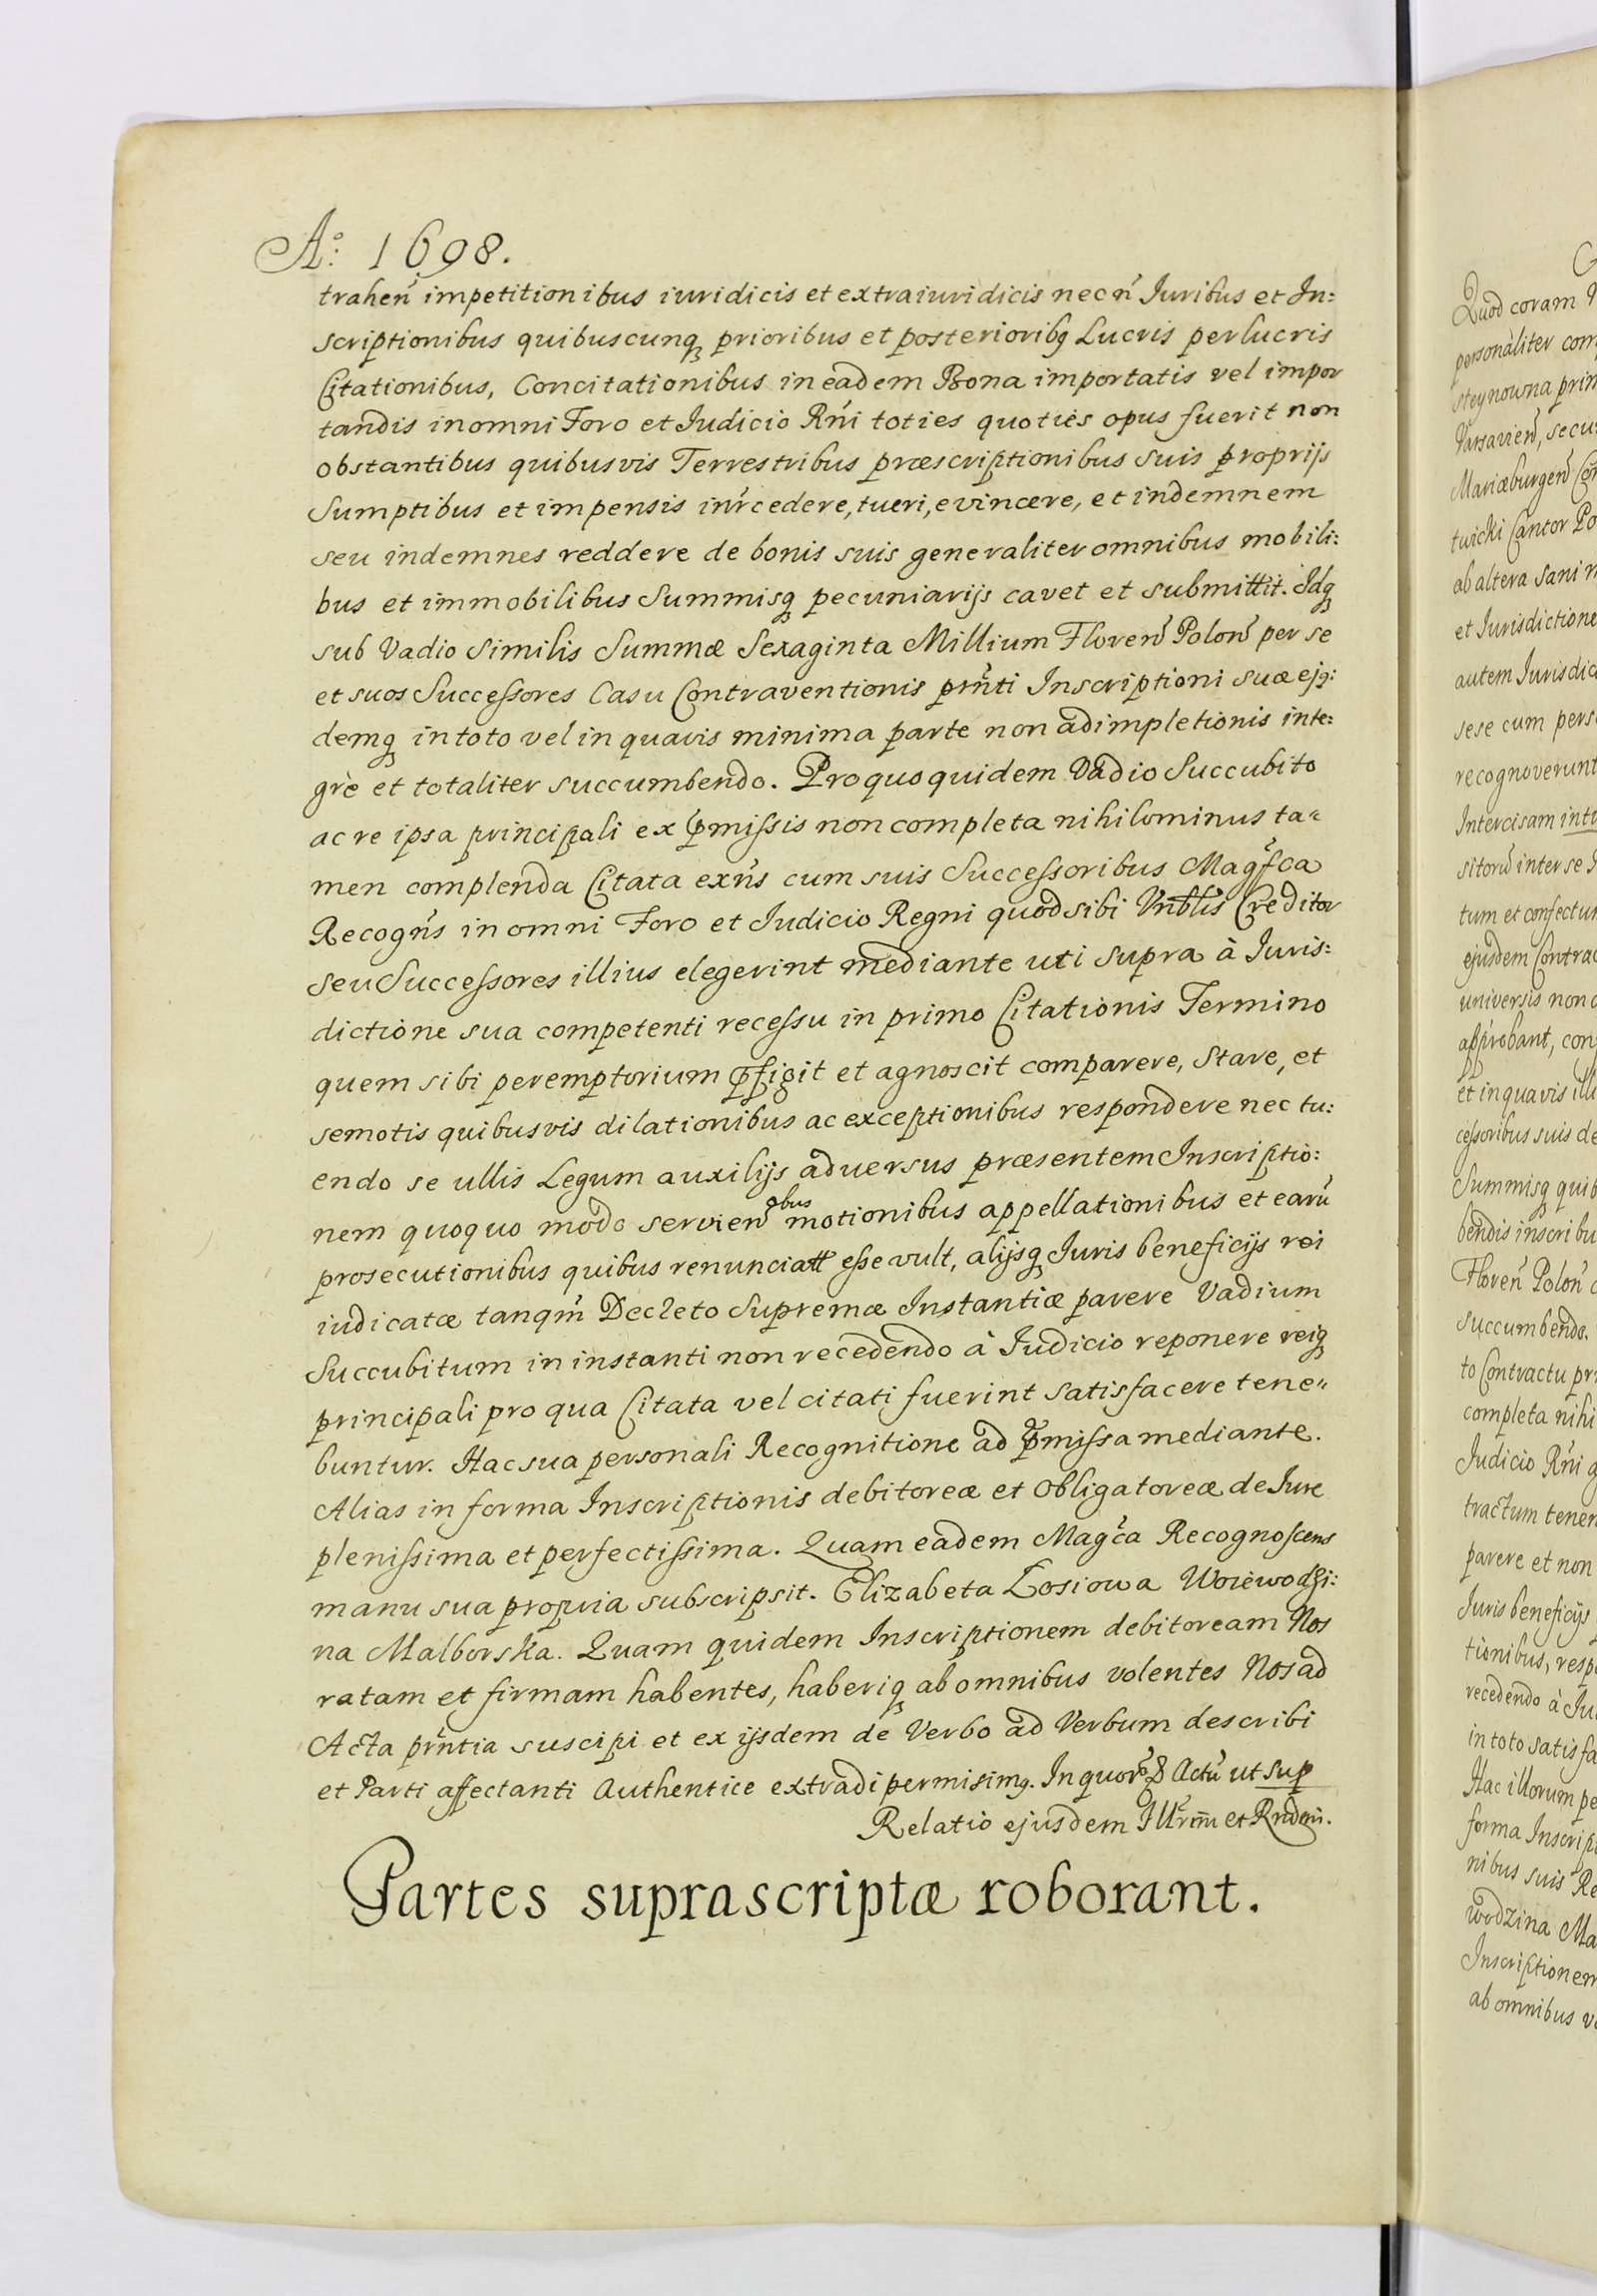 Aº: 1698.
trahen̄ impetitionibus iuridicis et extraiuridicis necn̄ Iuribus et In:
scriptionibus quibuscunq₃ prioribus et posteriorib₉ Lucris perlucris
Citationibus, Concitationibus in eadem Bona importatis vel impor
tandis in omni Foro et Iudicio Rn̄i toties quoties opus fuerit non
obstantibus quibusvis Terrestribus præscriptionibus suis proprijs
Sumptibus et impensis inr̄cedere, tueri, evincere, et indemnem
seu indemnes reddere de bonis suis generaliter omnibus mobili:
bus et immobilibus Summisq₃ pecuniarijs cavet et submittit. Idq₃
sub Vadio Similis Summæ Sexaginta Millium Floren̄ Polon̄ per se
et suos Successores Casu Contraventionis prn̄ti Inscriptioni suæ ej₉:
demq₃ in toto vel in quavis minima parte non adimpletionis inte:
grè et totaliter succumbendo. Pro quo quidem Vadio Succubito
ac re ipsa principali ex p̄missis non completa nihilominus ta=
men complenda Citata exn̄s cum suis Successoribus Magf̄ca
Recogn̄s in omni Foro et Iudicio Regni quod sibi Vn̄blis Creditor
seu Successores illius elegerint mediante uti supra à Iuris:
dictione sua competenti recessu in primo Citationis Termino
quem sibi peremptorium p̄figit et agnoscit comparere, Stare, et
semotis quibusvis dilationibus ac exceptionibus respondere nec tu:
endo se ullis Legum auxilijs adversus præsentem Inscriptio:
nem quoquo modo servien̄obus motionibus appellationibus et earū
prosecutionibus quibus renunciatt esse vult, alijsq₃ Iuris beneficijs rei
iudicatæ tanqm̄ Decreto Supremæ Instantiæ parere Vadium
Succubitum in instanti non recedendo à Iudicio reponere reiq₃
principali pro qua Citata vel citati fuerint satisfacere tene"
buntur. Hac sua personali Recognitione ad p̄missa mediante.
Alias in forma Inscriptionis debitoreæ et Obligatoreæ de Iure
plenissima et perfectissima. Quam eadem Magc̄a Recognoscens
manu sua propria subscripsit. Elizabeta Łosiowa Woiewodzi:
na Malborska. Quam quidem Inscriptionem debitoream Nos
ratam et firmam habentes, haberiq₃ ab omnibus volentes Nos ad
Acta prn̄tia suscipi et ex ijsdem de Verbo ad Verbum describi
et Parti affectanti Authentice extradi permisim₉. In quor̄ & Actū ut sup
Relatio ejusdem Illr̄m̄i et Rndm̄i.
Partes suprascriptæ roborant.
Quod coram
personaliter com
steynowna prim
Varsavien̄, secu
Mariæburgen̄ Con
twicki Cantor Po
ab altera sani
et Iurisdictione
autem Iurisdic
sese cum pers
recognoverunt
Intercisam
sitorū inter se
tum et confectum
ejusdem Contrac
universis non
approbant, con
et in quavis ill
cessoribus suis de
Summisq₃ quib
bendis inscribu
Floren̄ Polon̄
succumbendo.
to Contractu pr
completa nihi
Iudicio Rn̄i
tractum tener
parere et non
Iuris beneficijs
tionibus, resp
recedendo à Iu
in toto satisfa
Hac illorum pe
forma Inscrip
nibus suis Re
wodzina Ma
Inscriptionem
ab omnibus vo